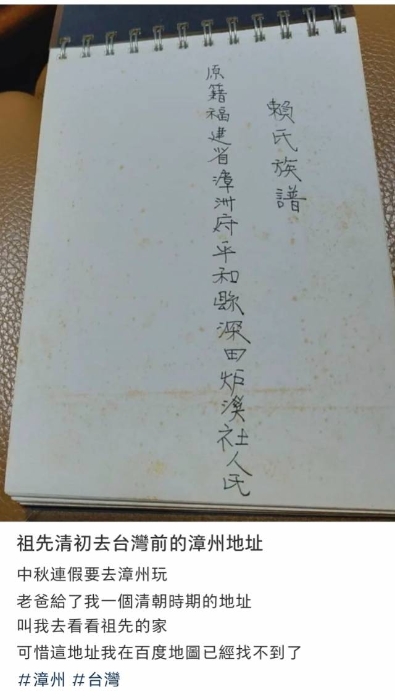 賴氏族譜
原籍福建省漳洲府平和縣深田炉溪社人民
祖先清初去台灣前的漳州地址
中秋連假要去漳州玩
老爸給了我一個清朝時期的地址
叫我去看看祖先的家
可惜這地址我在百度地圖已經找不到了
#漳州 #台灣